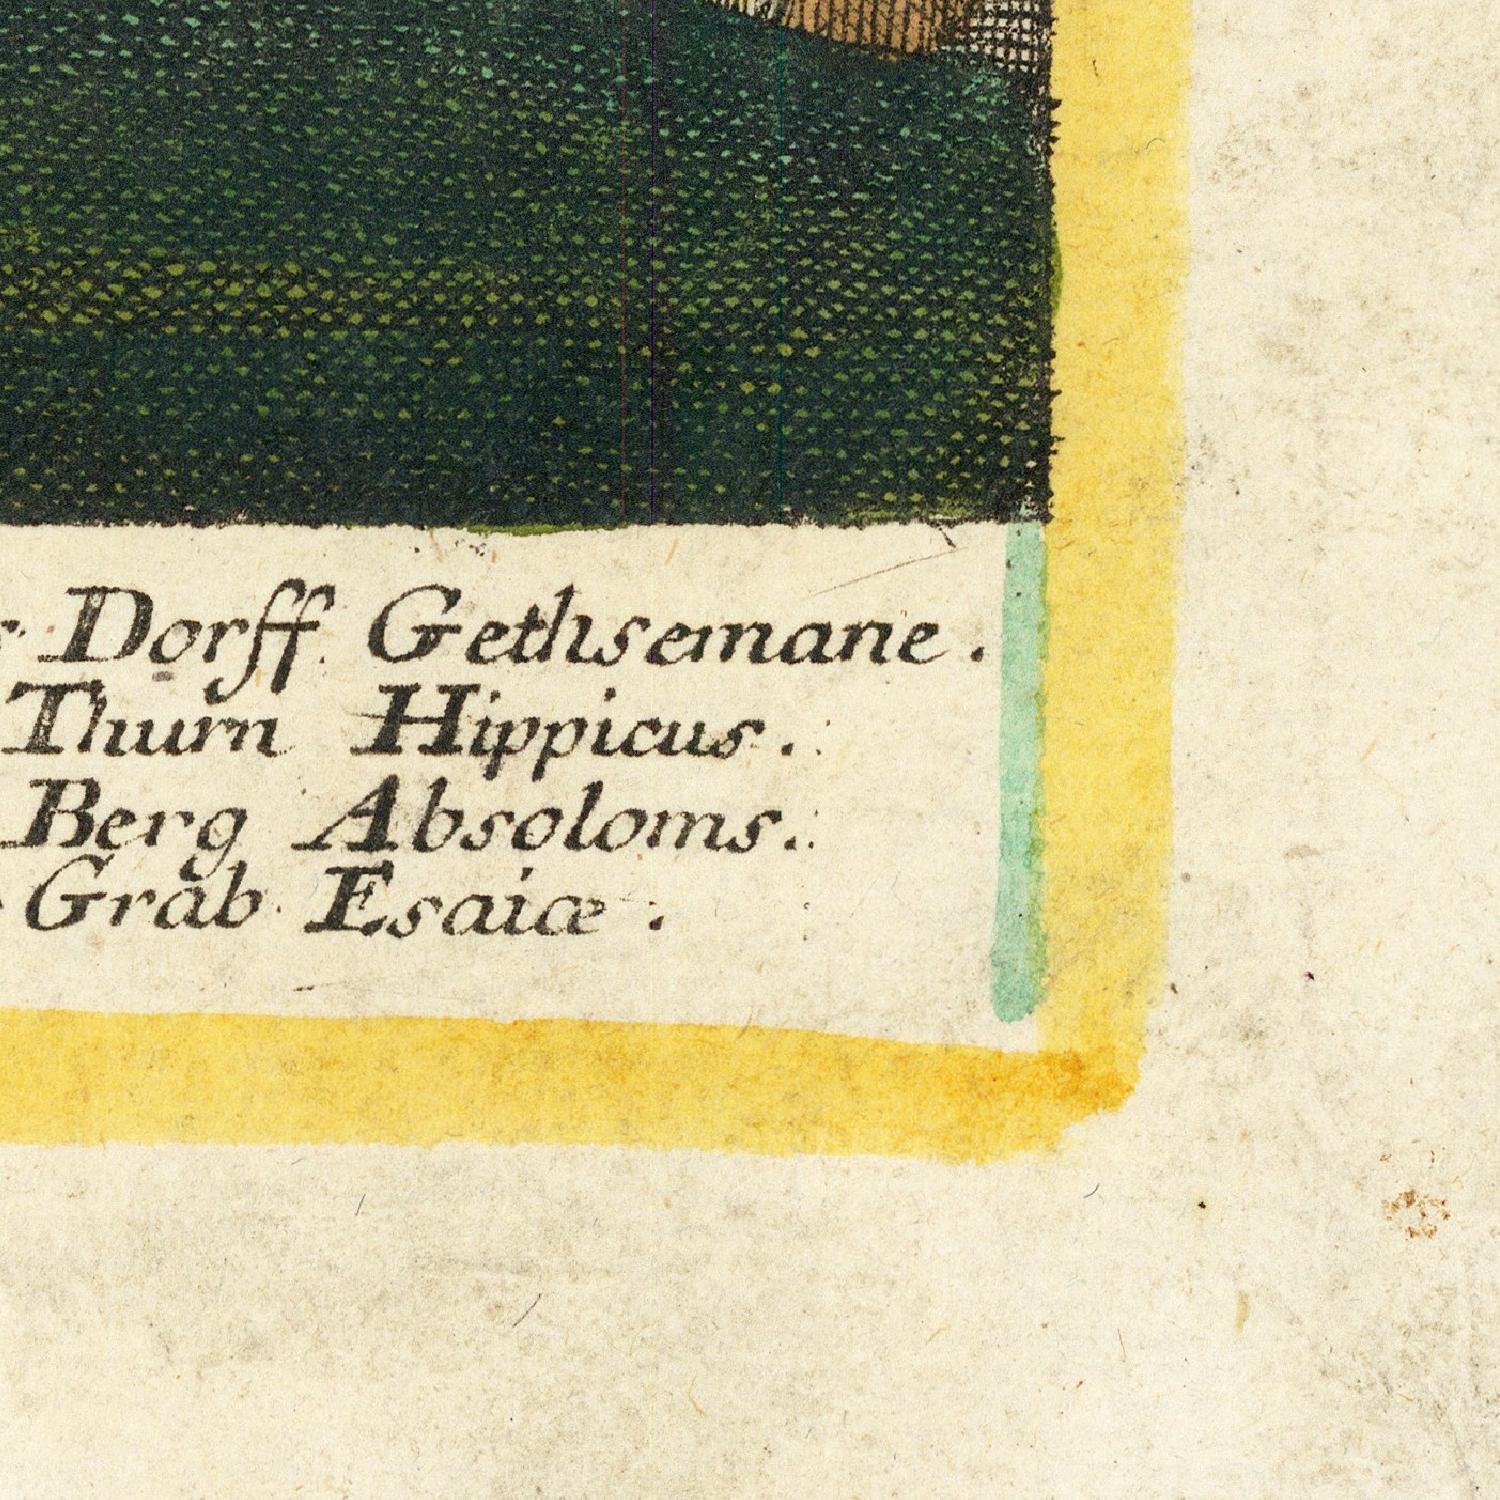 Dorff Gethsemane.
Thurn Hippicus.
Berg Absoloms.
Grab Esaiæ.